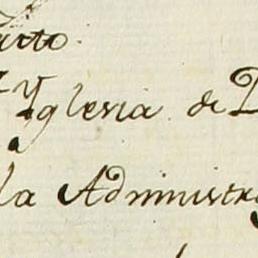 Yglesia de
la Administra